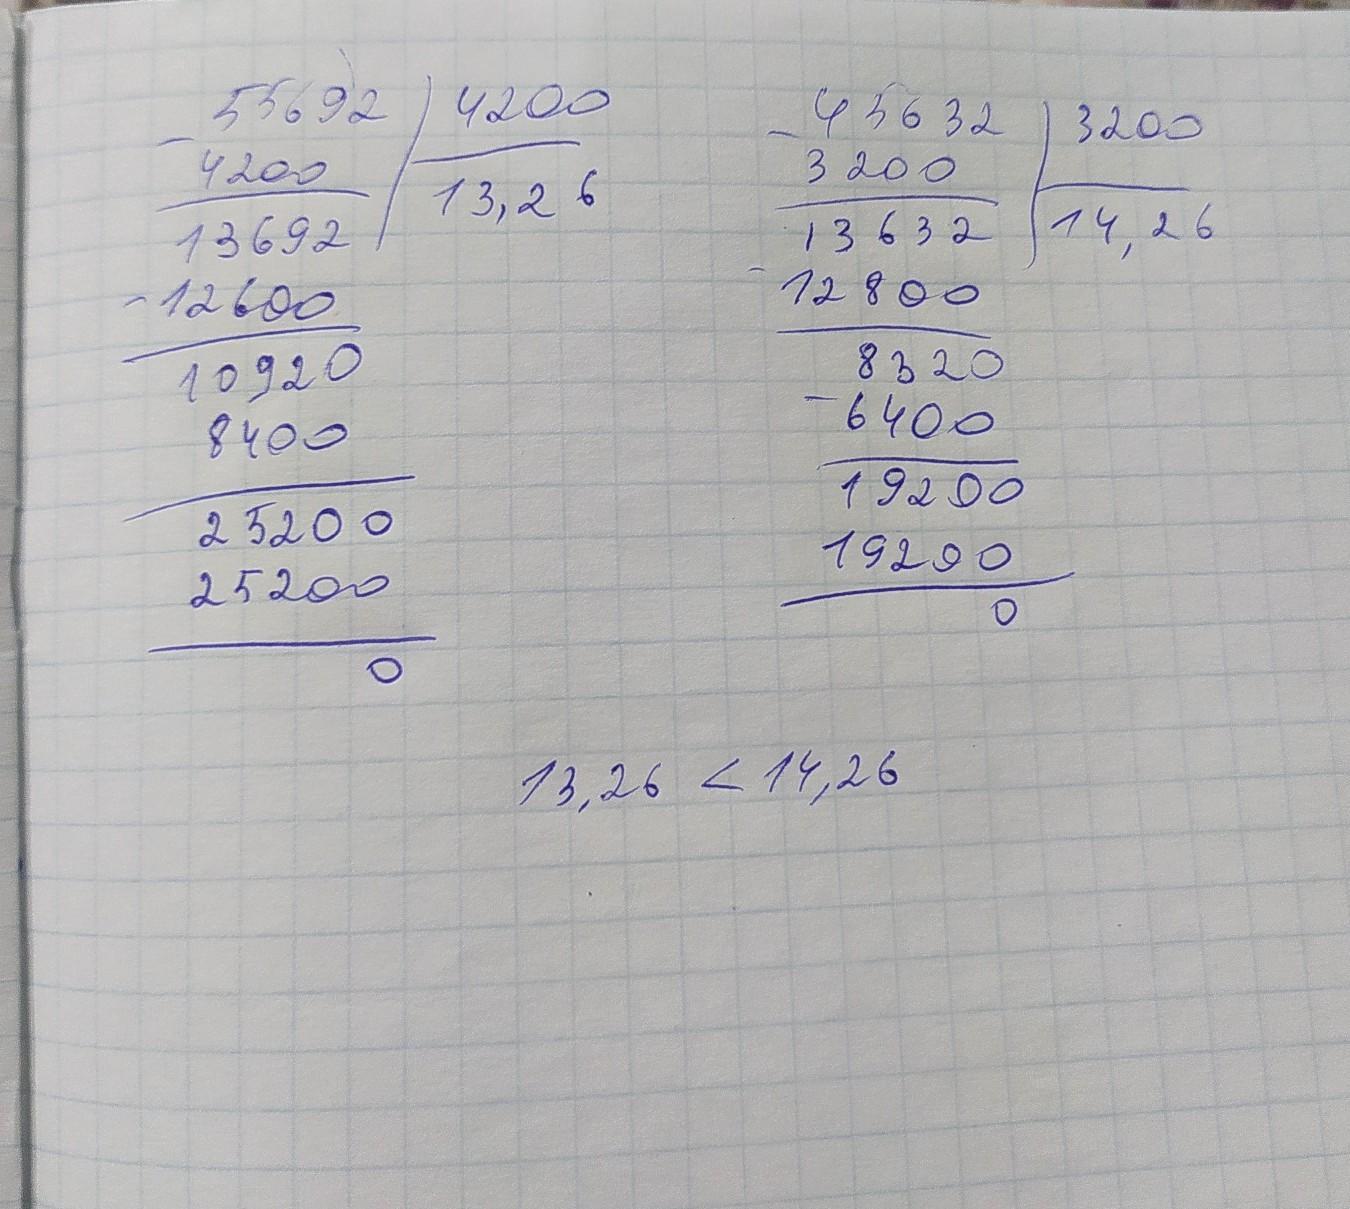 - 55692 | 4200
4200 | 13,26
13692
- 12600
10920
8400
25200
25200
0
- 45632 | 3200
3200 | 14,26
13632
- 12800
8320
- 6400
19200
19200
0
13,26 < 14,26